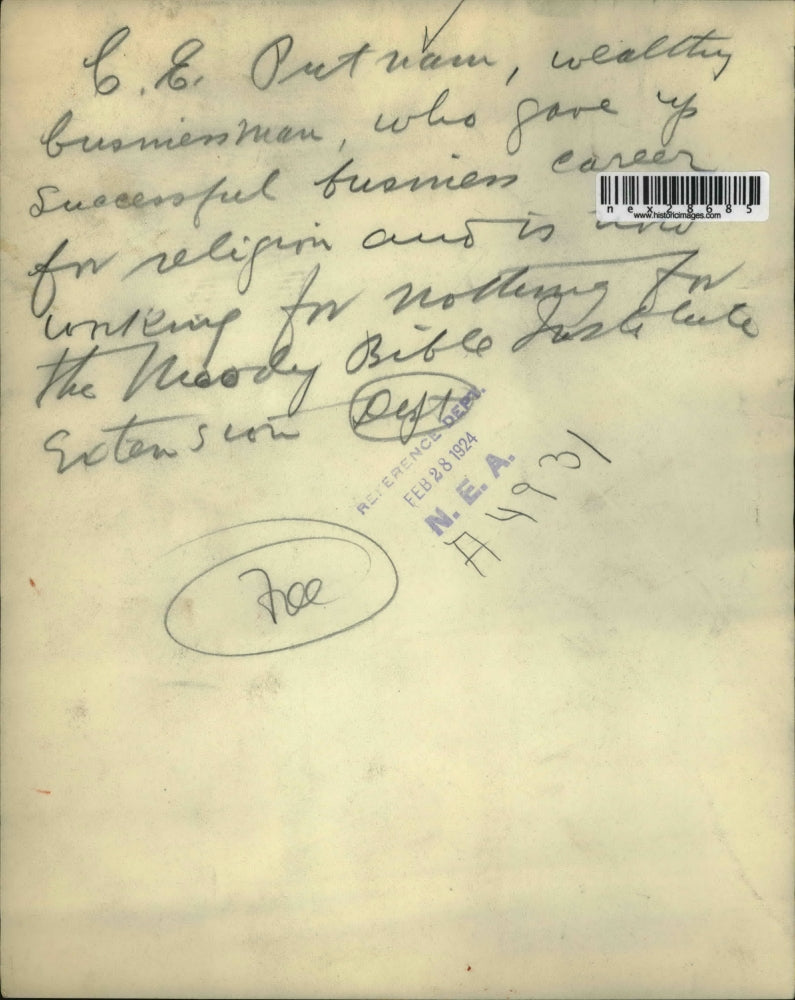 C. E. Putnam, wealthy
businessman, who gave up
successful business career
nex28685
www.historicimages.com
for religion and is now
working for nothing for
the Moody Bible Institute
Extension Dept
REFERENCE DEPT.
FEB 28 1924
N. E. A.
A4931
Free